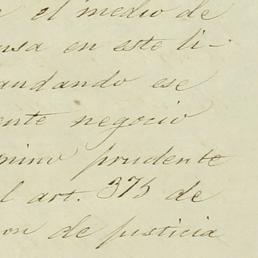 el medio de
usa en este li-
andando ese
ente negocio
mino prudente
l art. 375 de
on de justicia